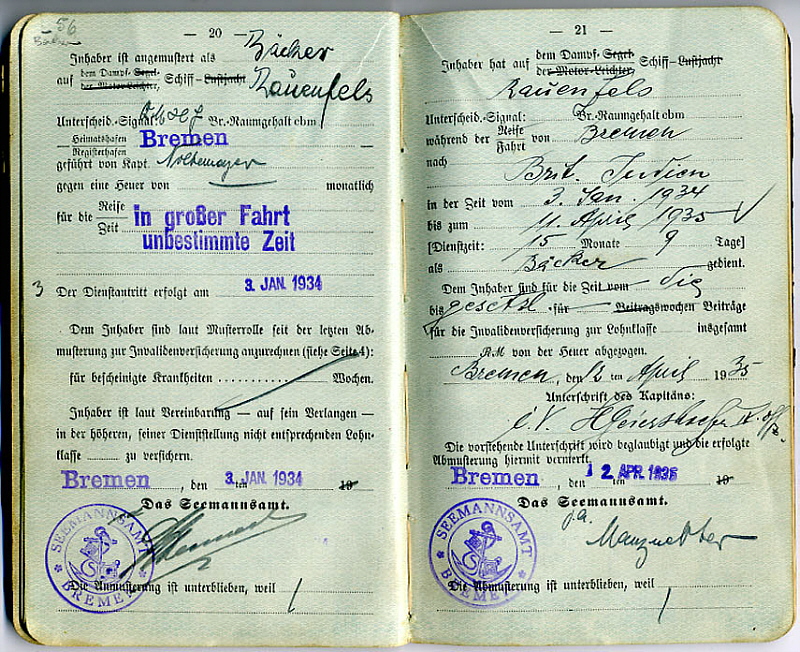 56
Bäcker
— 20 —
Inhaber ist angemustert als Bäcker
auf dem Dampf- Segel- Schiff-Lustjacht Rauenfels
der Motor-Leichter,
Unterscheid.-Signal: Br.-Raumgehalt cbm
Heimatshafen Bremen
Registerhafen
geführt von Kapt. Noltemayer
gegen eine Heuer von — monatlich
für die Reise in großer Fahrt
Zeit unbestimmte Zeit
3 Der Dienstantritt erfolgt am 3. JAN. 1934
Dem Inhaber sind laut Musterrolle seit der letzten Ab-
musterung zur Invalidenversicherung anzurechnen (siehe Seite 4):
für bescheinigte Krankheiten .......... Wochen.
Inhaber ist laut Vereinbarung — auf sein Verlangen —
in der höheren, seiner Dienststellung nicht entsprechenden Lohn-
klasse ........ zu versichern.
Bremen, den 3. JAN. 1934 ten 19
Das Seemannsamt.
SEEMANNSAMT
BREMEN
Die Abmusterung ist unterblieben, weil
— 21 —
Inhaber hat auf dem Dampf- Segel- Schiff-Lustjacht
der Motor-Leichter,
Rauenfels
Unterscheid.-Signal: Br.-Raumgehalt cbm
während der Reise von Bremen
Fahrt
nach
Brit. Indien
in der Zeit vom 3. Jan. 1934
bis zum 11. April 1935
[Dienstzeit: 15 Monate 9 Tage]
als Bäcker gedient.
Dem Inhaber sind für die Zeit vom — die
bis gesetzl. für — Beitragswochen Beiträge
für die Invalidenversicherung zur Lohnklasse insgesamt
RM von der Heuer abgezogen.
Bremen, den 12 ten April 1935
Unterschrift des Kapitäns:
i.V.
Die vorstehende Unterschrift wird beglaubigt und die erfolgte
Abmusterung hiermit vermerkt.
Bremen, den 12. APR. 1935 ten 19
Das Seemannsamt.
SEEMANNSAMT
BREMEN
Die Abmusterung ist unterblieben, weil